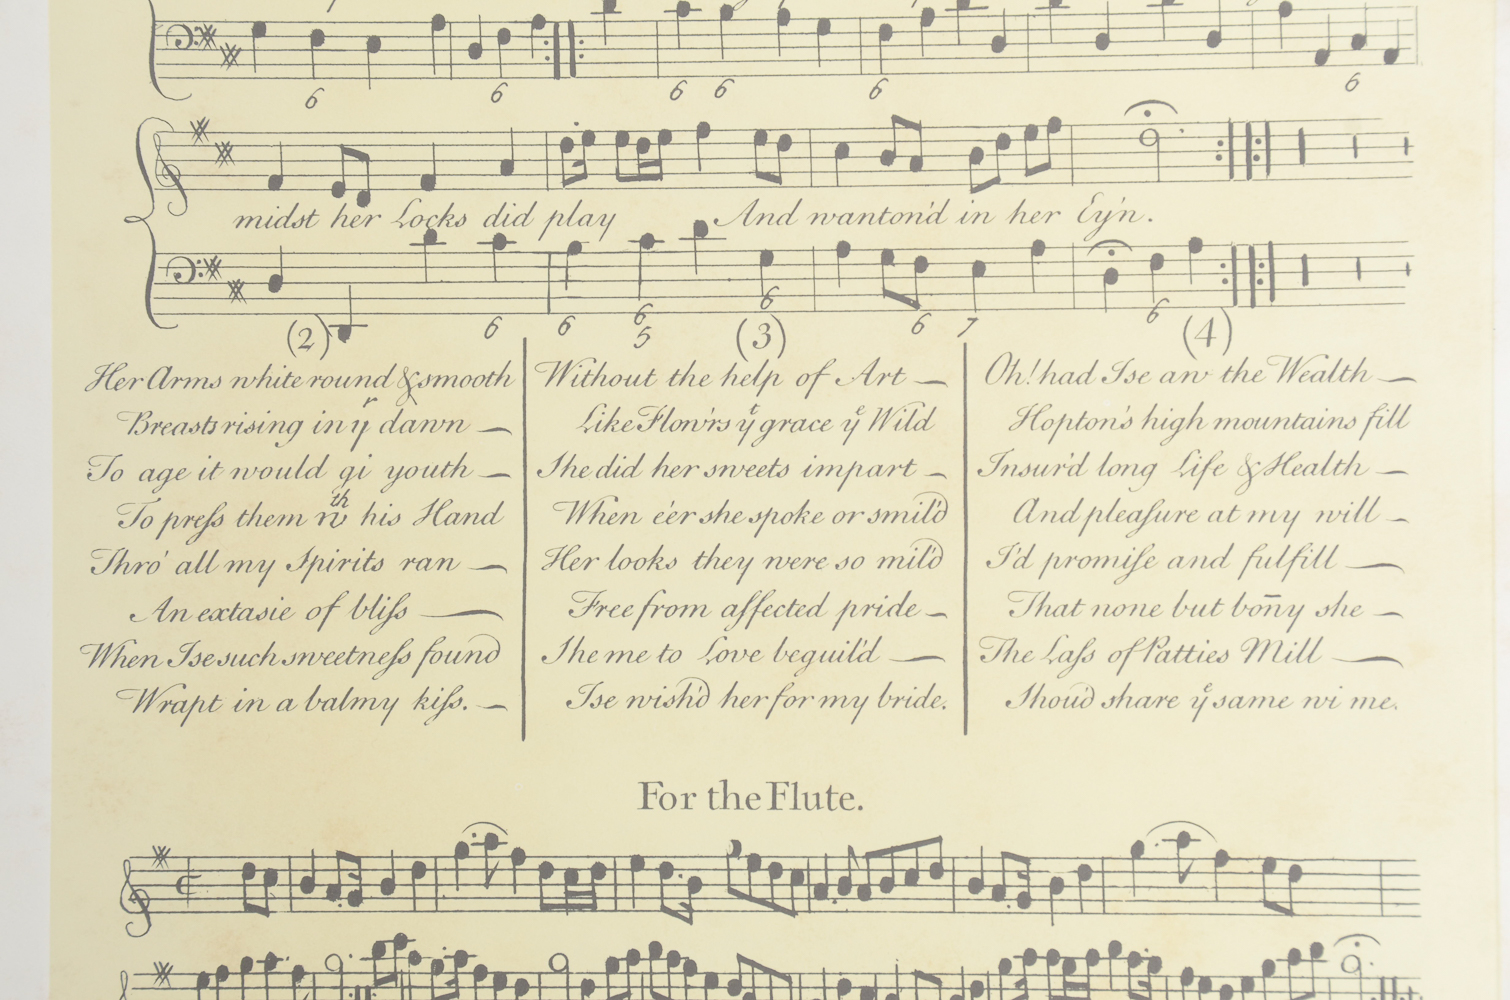 6 6 6 6 6 6
midst her Locks did play And wanton'd in her Ey'n.
6 6 6 5 6 6 7 6
(2)
Her Arms white round & smooth
Breasts rising in yr dawn
To age it would gi youth
To preſs them wth his Hand
Thro' all my Spirits ran
An extasie of bliſs
When Ise such sweetneſs found
Wrapt in a balmy kiſs.
(3)
Without the help of Art
Like Flow'rs yt grace ye Wild
She did her sweets impart
When e'er she spoke or smil'd
Her looks they were so mil'd
Free from affected pride
She me to Love beguil'd
Ise wish'd her for my bride.
(4)
Oh! had Ise aw the Wealth
Hopton's high mountains fill
Insur'd long Life & Health
And pleaſure at my will
I'd promiſe and fulfill
That none but boñy she
The Laſs of Patties Mill
Shou'd share ye same wi me.
For the Flute.